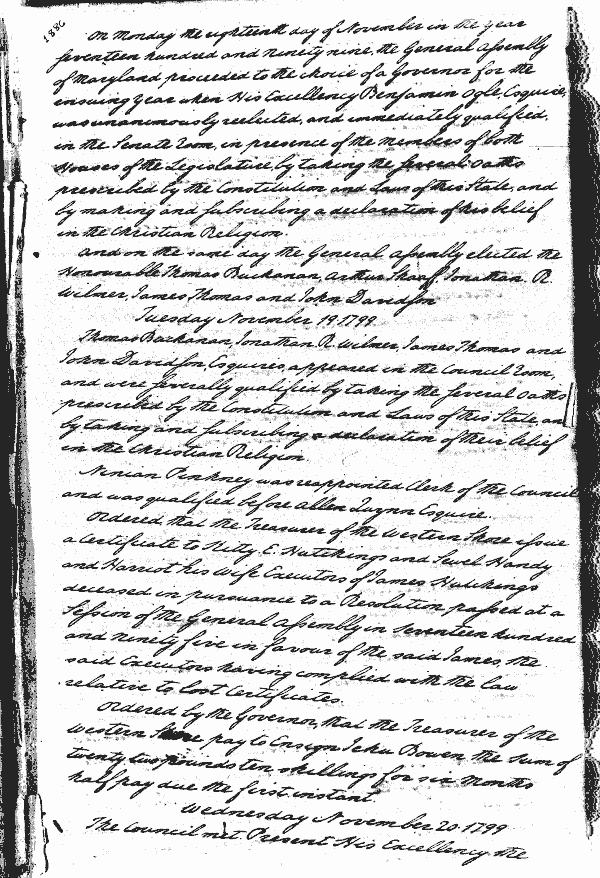 1886
On Monday the eighteenth day of November in the year
seventeen hundred and ninety nine, the General Assembly
of Maryland proceeded to the choice of a Governor for the
ensuing year when His Excellency Benjamin Ogle, Esquire,
was unanimously reelected, and immediately qualified,
in the Senate Room, in presence of the Members of both
Houses of the Legislature, by taking the several Oaths
prescribed by the Constitution and Laws of this State, and
by making and subscribing a declaration of his belief
in the Christian Religion.
And on the same day the General Assembly elected the
Honourable Thomas Buchanan, Arthur Shaaf, Jonathan R.
Wilmer, James Thomas and John Davidson
Tuesday November 19. 1799.
Thomas Buchanan, Jonathan R. Wilmer, James Thomas and
John Davidson, Esquires, appeared in the Council Room,
and were severally qualified by taking the several Oaths
prescribed by the Constitution and Laws of this State, and
by taking and subscribing a declaration of their belief
in the Christian Religion.
Ninian Pinkney was reappointed Clerk of the Council
and was qualified before Allen Quynn Esquire.
Ordered that the Treasurer of the Western Shore issue
a Certificate to Kitty E. Hutchings and Level Handy
and Harriot his Wife Executors of James Hutchings
deceased in pursuance to a Resolution passed at a
Session of the General Assembly in seventeen hundred
and ninety five in favour of the said James, the
said Executors having complied with the law
relative to Lost Certificates.
Ordered by the Governor, that the Treasurer of the
Western Shore pay to Ensign Jehu Bowen the sum of
twenty two pounds ten shillings for six Months
half pay due the first instant.
Wednesday November 20. 1799
The Council met. Present His Excellency the